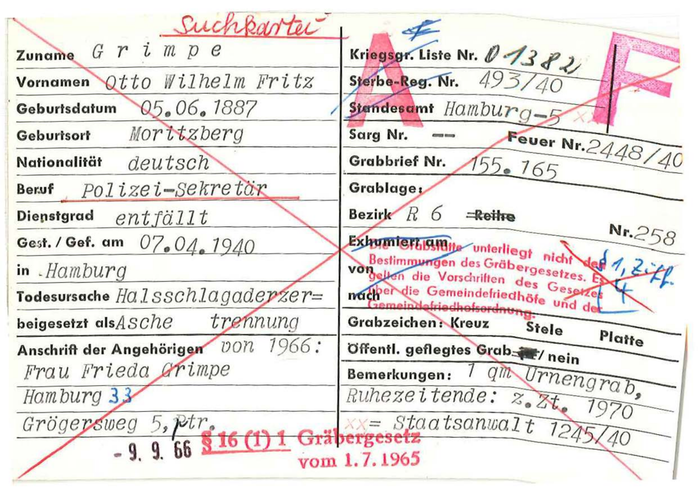 Suchkartei
Zuname Grimpe
Vornamen Otto Wilhelm Fritz
Geburtsdatum 05.06.1887
Geburtsort Moritzberg
Nationalität deutsch
Beruf Polizei-Sekretär
Dienstgrad entfällt
Gest./Gef. am 07.04.1940
in Hamburg
Todesursache Halsschlagaderzer=
beigesetzt als Asche trennung
Anschrift der Angehörigen von 1966:
Frau Frieda Grimpe
Hamburg 33
Grögersweg 5, ptr.
- 9. 9. 66
§ 16 (1) 1 Gräbergesetz
vom 1.7.1965
A
F
Kriegsgr. Liste Nr. 01382
Sterbe-Reg. Nr. 493/40
Standesamt Hamburg-5 xx
Sarg Nr. -- Feuer Nr. 2448/40
Grabbrief Nr. 155.165
Grablage:
Bezirk R 6 Reihe Nr. 258
Exhumiert am
von
nach
Die Grabstätte unterliegt nicht den
Bestimmungen des Gräbergesetzes. Es
gelten die Vorschriften des Gesetzes
über die Gemeindefriedhöfe und der
Gemeindefriedhofsordnung.
§ 1, Ziff.
4
Grabzeichen: Kreuz Stele Platte
Öffentl. gepflegtes Grab / nein
Bemerkungen: 1 qm Urnengrab,
Ruhezeitende: z.Zt. 1970
xx= Staatsanwalt 1245/40